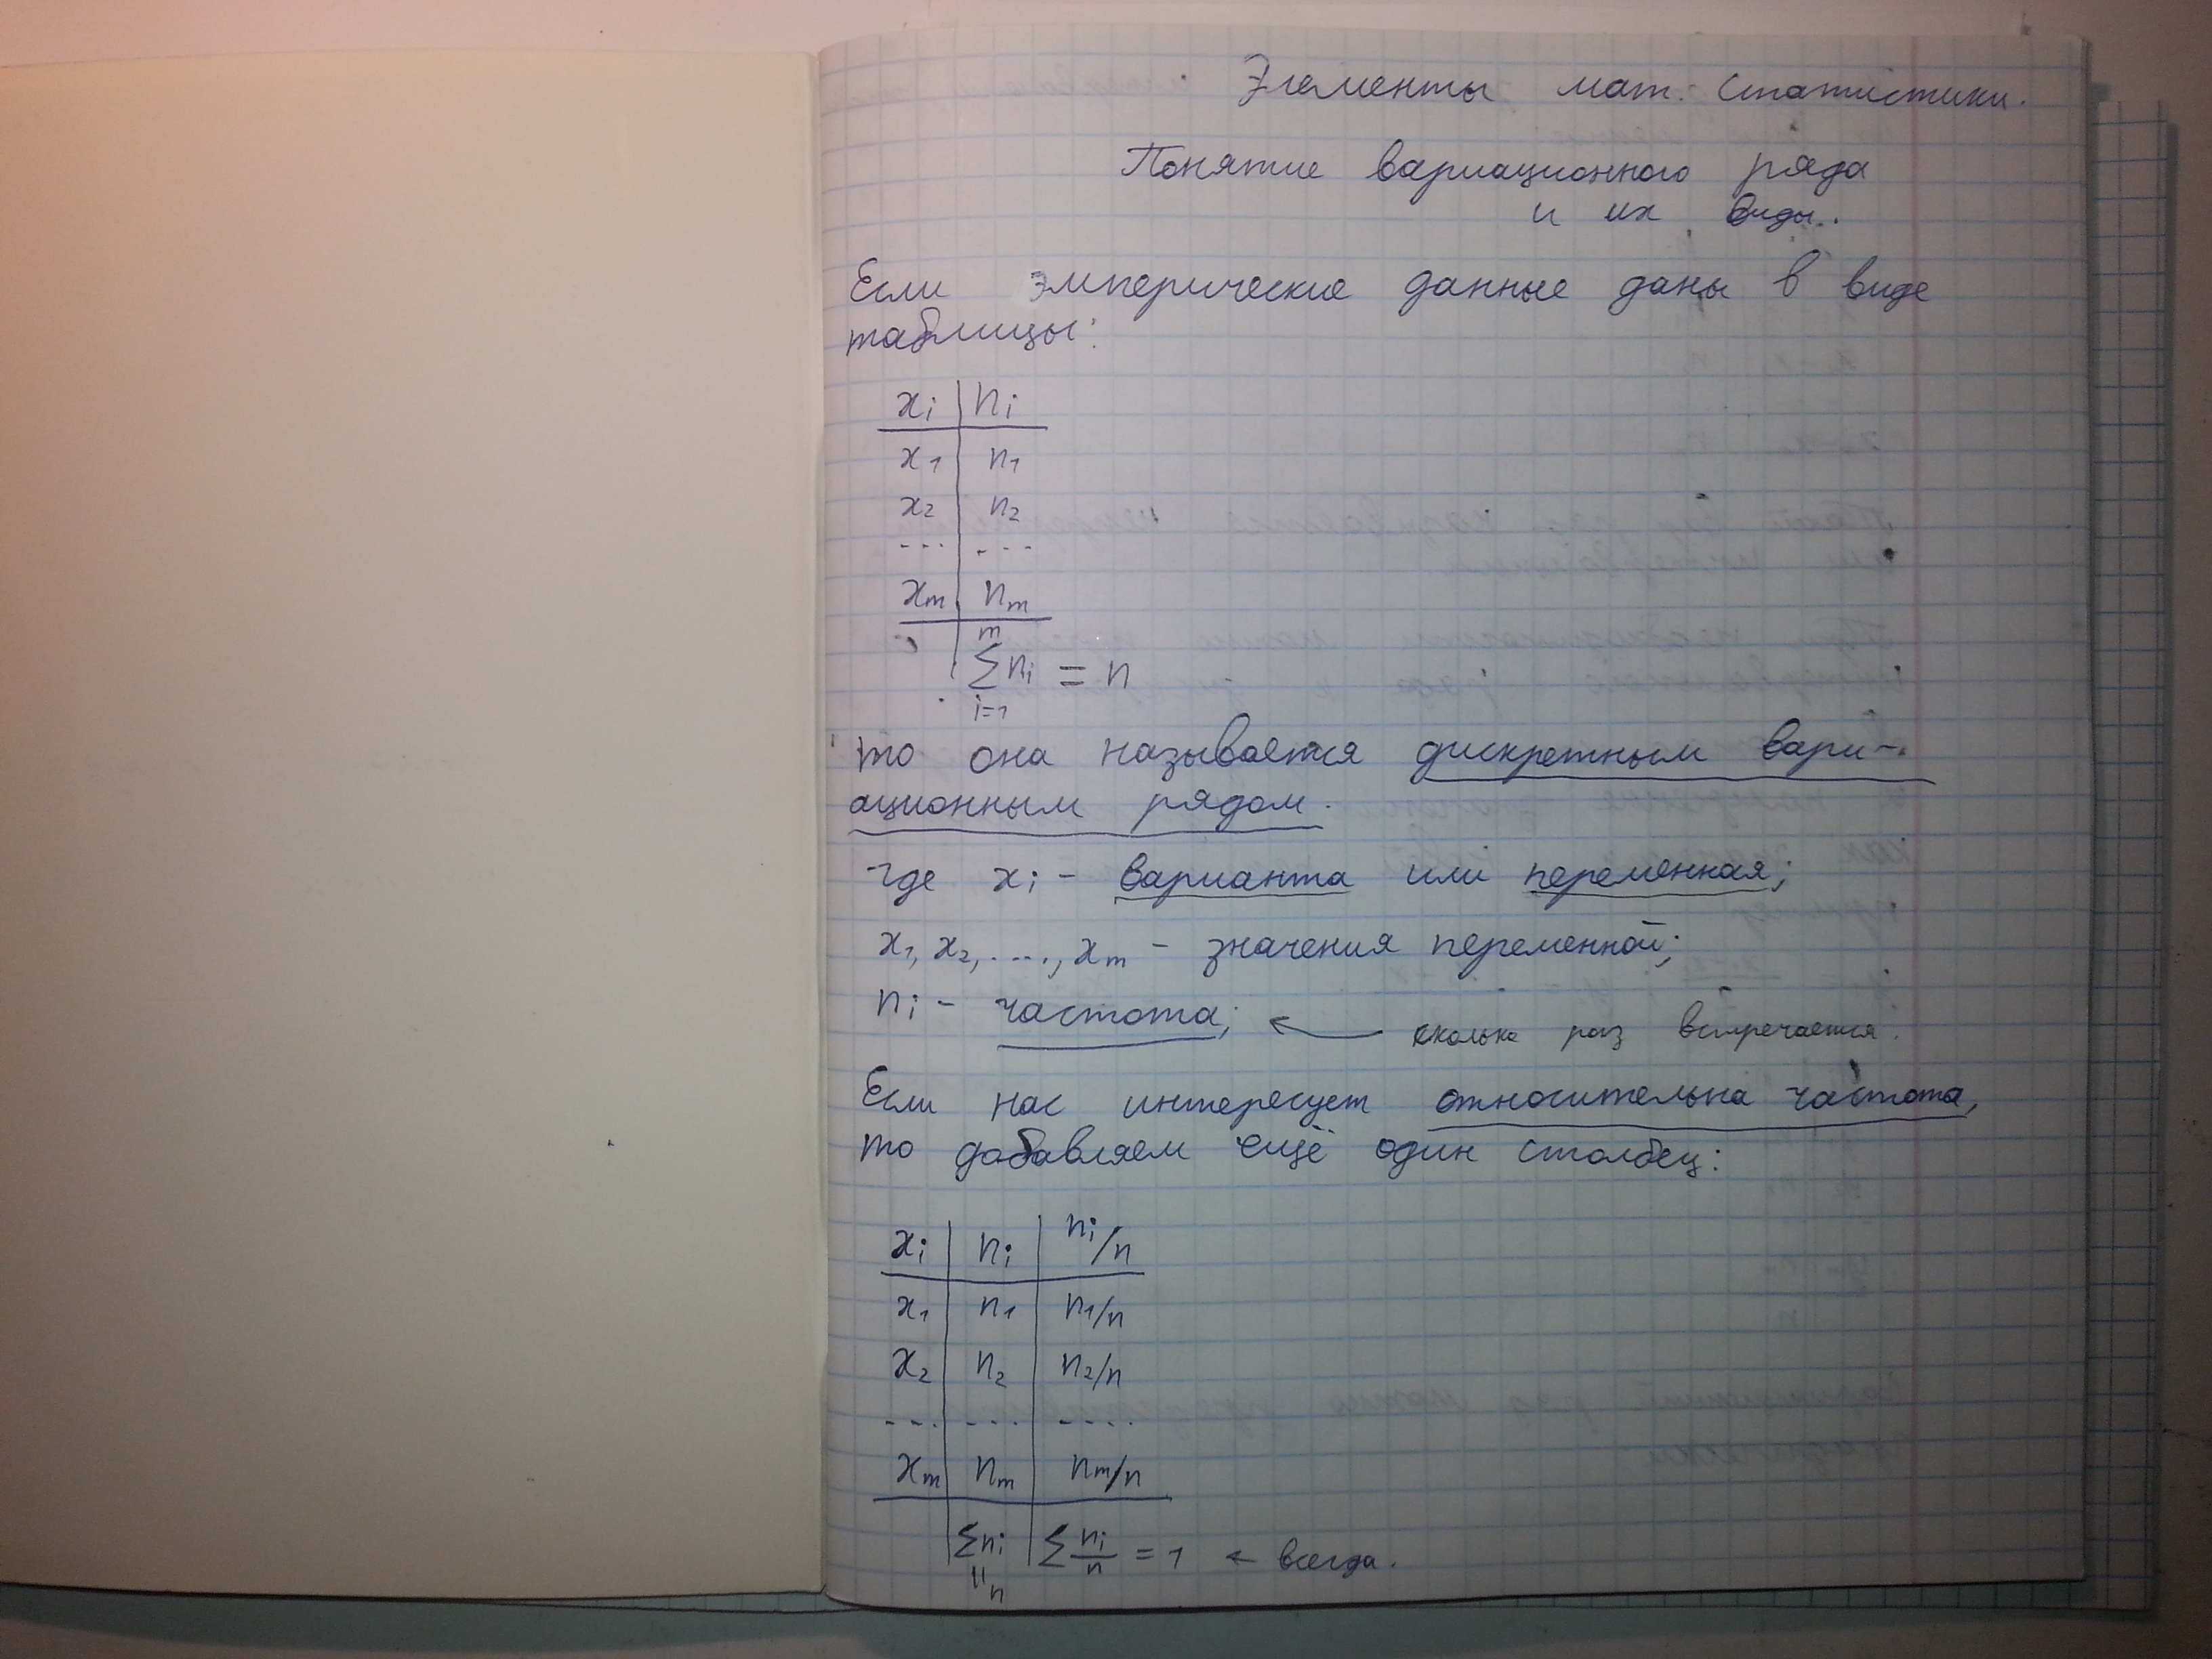 Элементы мат. статистики.
Понятие вариационного ряда
и их виды.
Если эмперические данные даны в виде
таблицы:
xi | ni
x1 | n1
x2 | n2
... | ...
xm | nm
m
∑ni = n
i=1
то она называется дискретным вари-
ационным рядом.
где xi - варианта или переменная;
x1, x2, ...., xm - значения переменной;
ni - частота; ← сколько раз встречается.
Если нас интересует относительна частота,
то добавляем ещё один столбец:
xi | ni | ni/n
x1 | n1 | n1/n
x2 | n2 | n2/n
... | ... | ....
xm | nm | nm/n
∑ni | ∑ni/n = 1 ← всегда.
"n